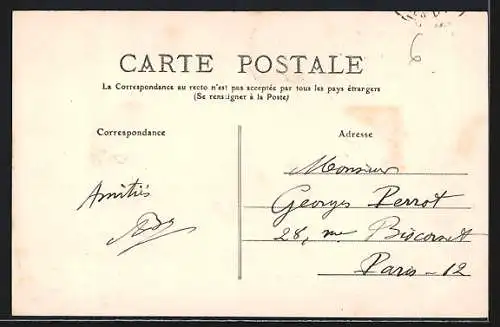 CARTE POSTALE
La Correspondance au recto n'est pas acceptée par tous les pays étrangers
(Se renseigner à la Poste)
Correspondance
Adresse
Amitiés
Monsieur
Georges Perrot
28, rue Biscornet
Paris - 12
6